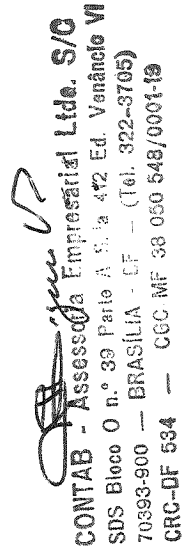 CONTAB - Assessoria Empresarial Ltda. S/C
SDS Bloco O n.º 39 Parte A S. la 412 Ed. Venâncio VI
70393-900 — BRASÍLIA - DF — (Tel. 322-3705)
CRC-DF 534 — CGC MF 38 050 548/0001-19